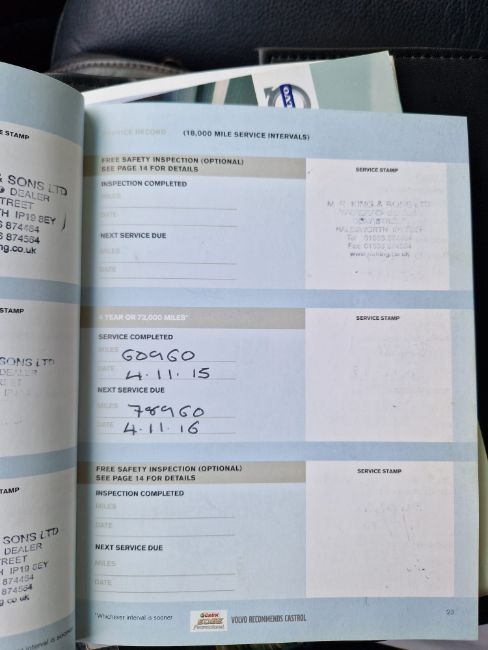 E STAMP
& SONS LTD
DEALER
TREET
TH IP19 8EY
874464
874564
ng.co.uk
STAMP
SONS LTD
DEALER
TAMP
SONS LTD
DEALER
REET
H IP19 8EY
874464
874564
g.co.uk
interval is sooner
SERVICE RECORD (18,000 MILE SERVICE INTERVALS)
FREE SAFETY INSPECTION (OPTIONAL)
SEE PAGE 14 FOR DETAILS
INSPECTION COMPLETED
MILES
DATE
NEXT SERVICE DUE
MILES
DATE
SERVICE STAMP
M. R. KING & SONS LTD
HALESWORTH
www.mrking.co.uk
4 YEAR OR 72,000 MILES*
SERVICE COMPLETED
MILES 60960
DATE 4.11.15
NEXT SERVICE DUE
MILES 78960
DATE 4.11.16
SERVICE STAMP
FREE SAFETY INSPECTION (OPTIONAL)
SEE PAGE 14 FOR DETAILS
INSPECTION COMPLETED
MILES
DATE
NEXT SERVICE DUE
MILES
DATE
SERVICE STAMP
*Whichever interval is sooner
Castrol
EDGE
Professional
VOLVO RECOMMENDS CASTROL
23